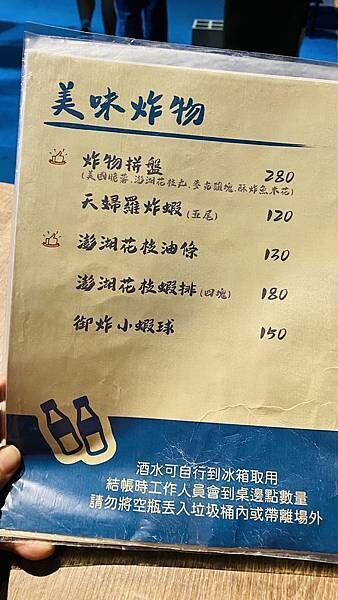 美味炸物
炸物拼盤 280
(美國脆薯.澎湖花枝丸.麥香雞塊.酥炸魚米花)
天婦羅炸蝦(五尾) 120
澎湖花枝油條 130
澎湖花枝蝦排(四塊) 180
御炸小蝦球 150
酒水可自行到冰箱取用
結帳時工作人員會到桌邊點數量
請勿將空瓶丟入垃圾桶內或帶離場外